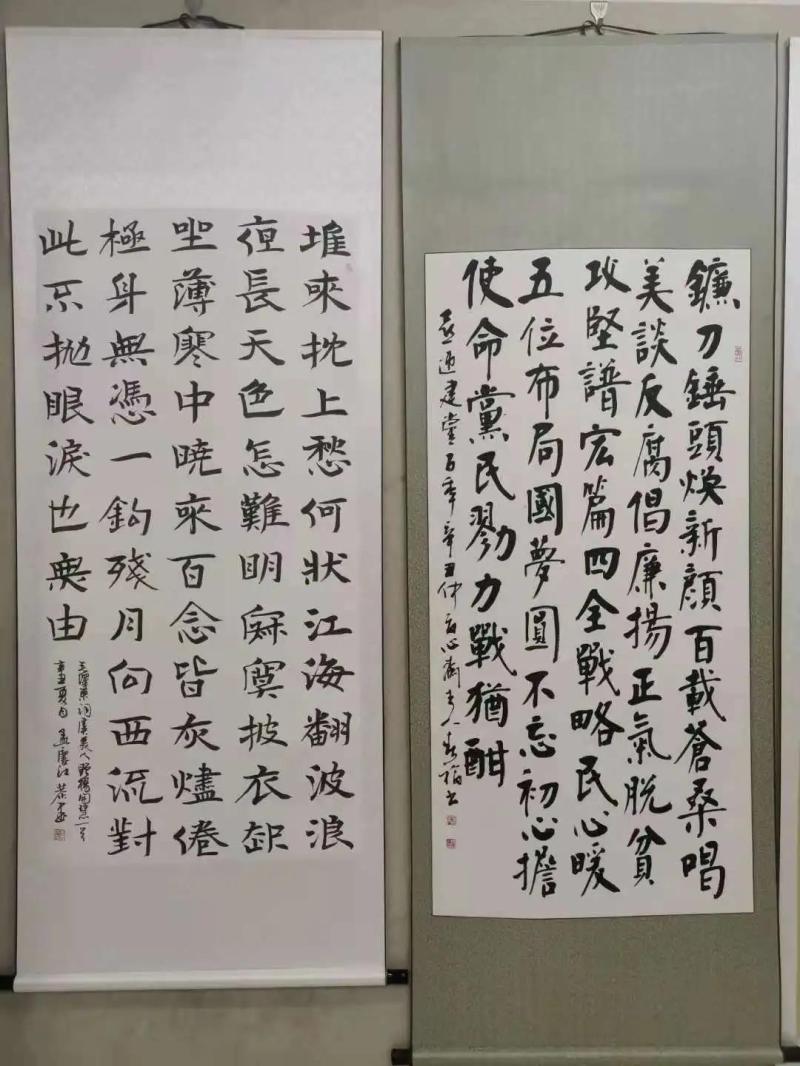 堆來枕上愁何狀江海翻波浪
夜長天色怎難明寂寞披衣起
坐薄寒中曉來百念皆灰燼倦
極身無憑一鈎殘月向西流對
此不抛眼淚也無由
毛澤東詞虞美人
辛丑夏月孟慶江
鐮刀錘頭煥新顏百載蒼桑唱
美談反腐倡廉揚正氣脫貧
攻堅譜宏篇四全戰略民心暖
五位布局國夢圓不忘初心擔
使命黨民勠力戰猶酣
建黨百年辛丑仲夏心齋主人書